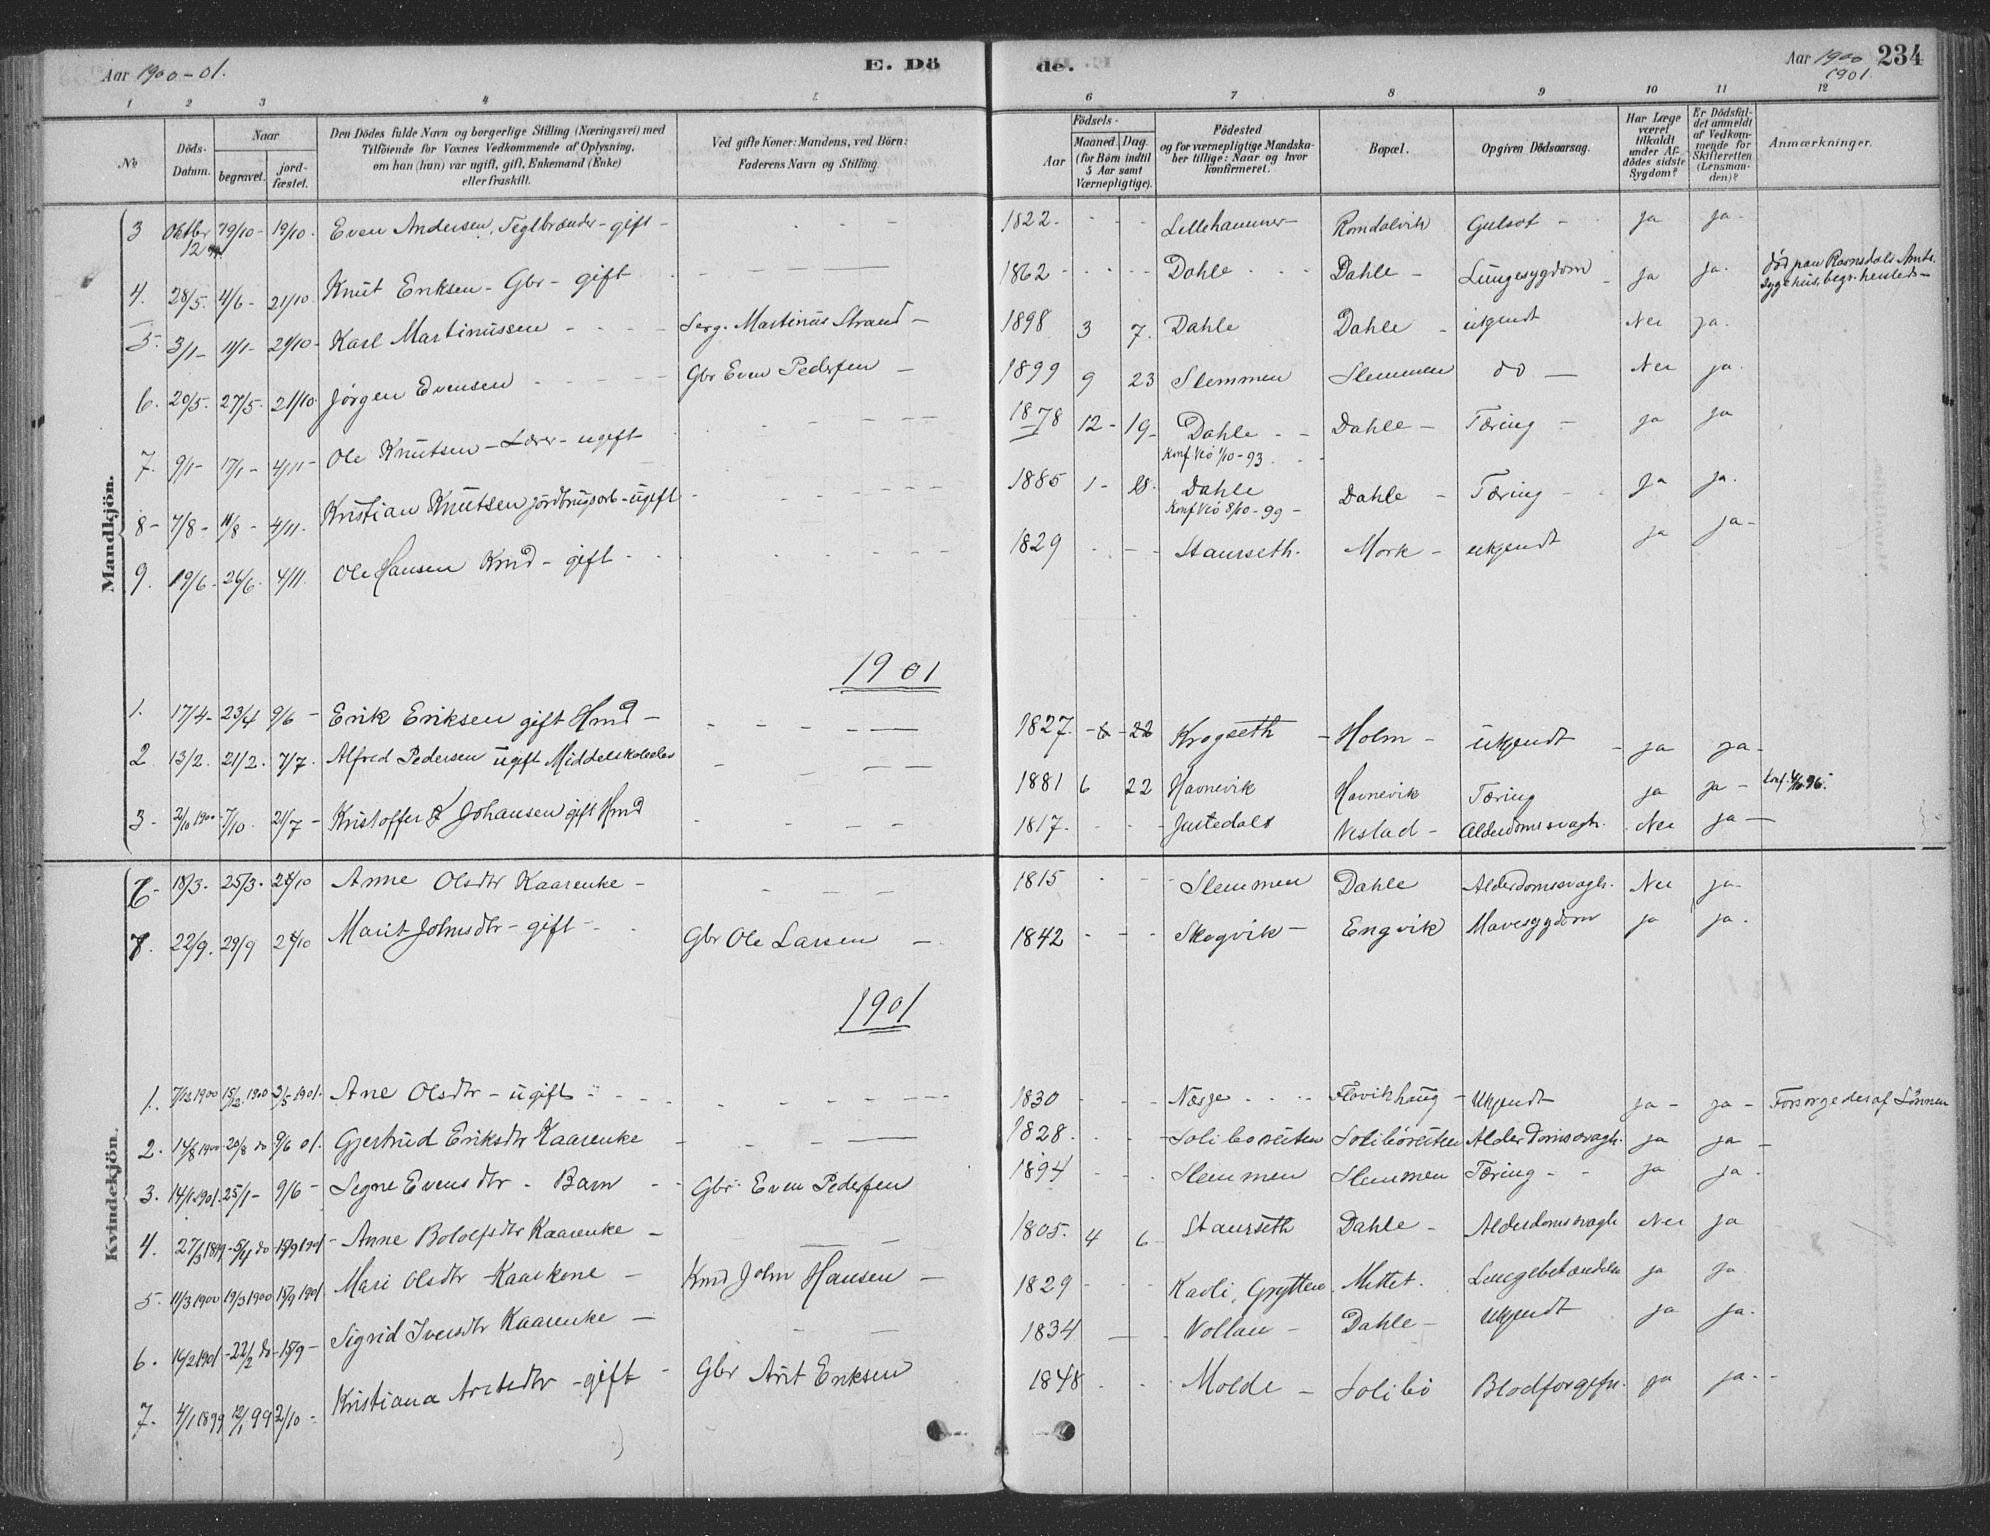 Aar 1900-01.
E. Dö
de.
Aar 1900 1901.
234
1 2 3 4 5 6 7 8 9 10 11 12
No
Döds-Datum.
Naar
begravet.
jord-fæstet.
Den Dödes fulde Navn og borgerlige Stilling (Næringsvei) med
Tilföiende for Voxnes Vedkommende af Oplysning,
om han (hun) var ugift, gift, Enkemand (Enke)
eller fraskilt.
Ved gifte Koner: Mandens, ved Börn:
Faderens Navn og Stilling.
Födsels-
Aar
Maaned. Dag.
(for Börn indtil
5 Aar samt
Værnepligtige).
Födested
og for værnepligtige Mandska-
ber tillige: Naar og hvor
konfirmeret.
Bopæl.
Opgiven Dödsaarsag.
Har Læge
været
tilkaldt
under Af-
dödes sidste
Sygdom?
Er Dödsfal-
det anmeldt
af Vedkom-
mende for
Skifteretten
(Lensman-
den)?
Anmærkninger.
Mandkjön.
3 Oktbr 12 19/10 - 19/10. Even Andersen, Teglbrænder - gift - 1822 - Lillehammer - Romdalvik Gulsot - ja ja -
4. 28/5. 4/6 - 21/10 Knut Eriksen - Gbr - gift 1862 - Dahle - Dahle - Lungesygdom - ja ja. død paa Romsdals Amts Sygehus, begr.
5. 3/1 - 11/1 - 21/10 - Karl Martinussen - Serg. Martinus Strand - 1898 3 7. Dahle Dahle - ukjendt Nei ja.
6. 20/5. 27/5. 21/10. Jørgen Evensen - Gbr Even Pedersen - 1899 9 23 Slemmen Slemmen do - Nei ja.
7. 9/1 - 17/1 - 4/11 - Ole Knutsen - Lærer - ugift 1878 12 - 19 - Dahle - Dahle - Tæring - ja ja
Konf Veø 1/10 - 93.
8 - 7/8 - 11/8 - 4/11. Kristian Knutsen jordbrugsarb - ugift - 1885 1 - 18. Dahle Dahle - Tæring - ja ja.
Konf Veö 8/10 - 99 -
9. 19/6. 26/6. 4/11. Ole Hansen Kmd - gift - 1829 - Staurseth. Mork - ukjendt ja ja -
1901
1. 17/4 - 23/4 9/6 - Erik Eriksen gift Hmd - 1827. 22 Krogseth - Holm - ukjendt - ja ja -
2 13/2. 21/2. 7/7. Alfred Pedersen ugift Middelskoleelev 1881 6 22 Havnevik Havnevik Tæring ja ja -
3 - 2/10 1900 - 7/10. 21/7 - Kristoffer Johansen gift Hmd 1817. - Justedals Nestad - Alderdomssvagh. Nei ja -
Kvindekjön.
6 - 18/3. 25/3. 21/10 Anne Olsdtr Kaarenke - 1815 - Slemmen Dahle Alderdomssvagh. Nei ja -
7. 22/9. 29/9 21/10 Marit Johnsdtr - gift - Gbr Ole Larsen - 1842 - Skogvik - Engvik Mavesygdom ja ja.
1901
1. 7/12 1900 15/12 1900 2/5 1901. Ane Olsdtr - ugift - 1830 - Næsje - Flovikhaug - Ukjendt ja - ja - Forsørgedes af Sønnen
2. 14/8 1900 20/8 do 9/6 01. Gjertrud Eriksdtr Kaarenke - 1828. - Solibøreiten Solibøreiten Alderdomssvagh. ja ja -
3. 14/1 1901. 25/1 - 9/6 - Signe Evensdtr - Barn - Gbr. Even Pedersen 1894 - Slemmen Slemmen Tæring - ja ja -
4. 27/3 1899 - 5/4 do 15/9 1901 - Anne Bololfsdtr Kaarenke - 1805. 4 6 Staurseth Dahle - Alderdomssvagh Nei ja
5. 11/3 1900 19/3 1900 15/9 1901 Mari Olsdtr Kaarkone - Kmd John Hansen - 1829 - Kavli, Grytten Mittet. Lungebetændelse ja ja.
6. 14/2 1901 - 22/2 do - 15/9 - Sigrid Iversdtr Kaarenke - 1834 - Vollan - Dahle - Ukjendt ja ja.
7. 4/1 1899 12/1 99 2/10 - Kristiana Arntsdtr - gift - Gbr Arnt Eriksen 1848 - Molde - Solibø Blodforgifn. ja ja -